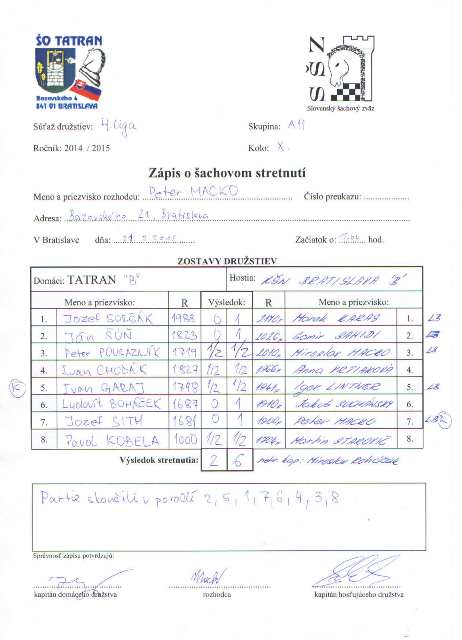 ŠO TATRAN
Bazovského 4
841 01 BRATISLAVA
SŠN
Slovenský šachový zväz
Súťaž družstiev: 4. liga
Skupina: A11
Ročník: 2014 / 2015
Kolo: X.
Zápis o šachovom stretnutí
Meno a priezvisko rozhodcu: Peter MACKO
Číslo preukazu:
Adresa: Bazovského 21, Bratislava
V Bratislave dňa:
Začiatok o: hod.
ZOSTAVY DRUŽSTIEV
Domáci: TATRAN "B"
Hostia: KŠN BRATISLAVA "B"
Meno a priezvisko: R Výsledok: R Meno a priezvisko:
1. Jozef 1988 0 1 Marek 1. LB
2. Ján ŠÚŇ 1823 0 1 SAHIDI 2.
3. Peter POVAŽANÍK 1719 1/2 1/2 Miroslav MACKO 3. LB
4. Ivan CHODÁK 1827 1/2 1/2 Anna 4.
5. Ivan GARAJ 1798 1/2 1/2 Igor LINTNER 5. LB
6. Ludovít BOHÁČEK 1687 0 1 Jakub SUCHÁNSKY 6.
7. Jozef SITH 1681 0 1 Peter MACKO 7.
8. Pavol KOBELA 1000 1/2 1/2 Martin 8.
Výsledok stretnutia: 2 6 kap: Miroslav
Partie skončili v poradí 2, 5, 1, 7, 6, 4, 3, 8
Správnosť zápisu potvrdzujú:
kapitán domáceho družstva
rozhodca
kapitán hosťujúceho družstva